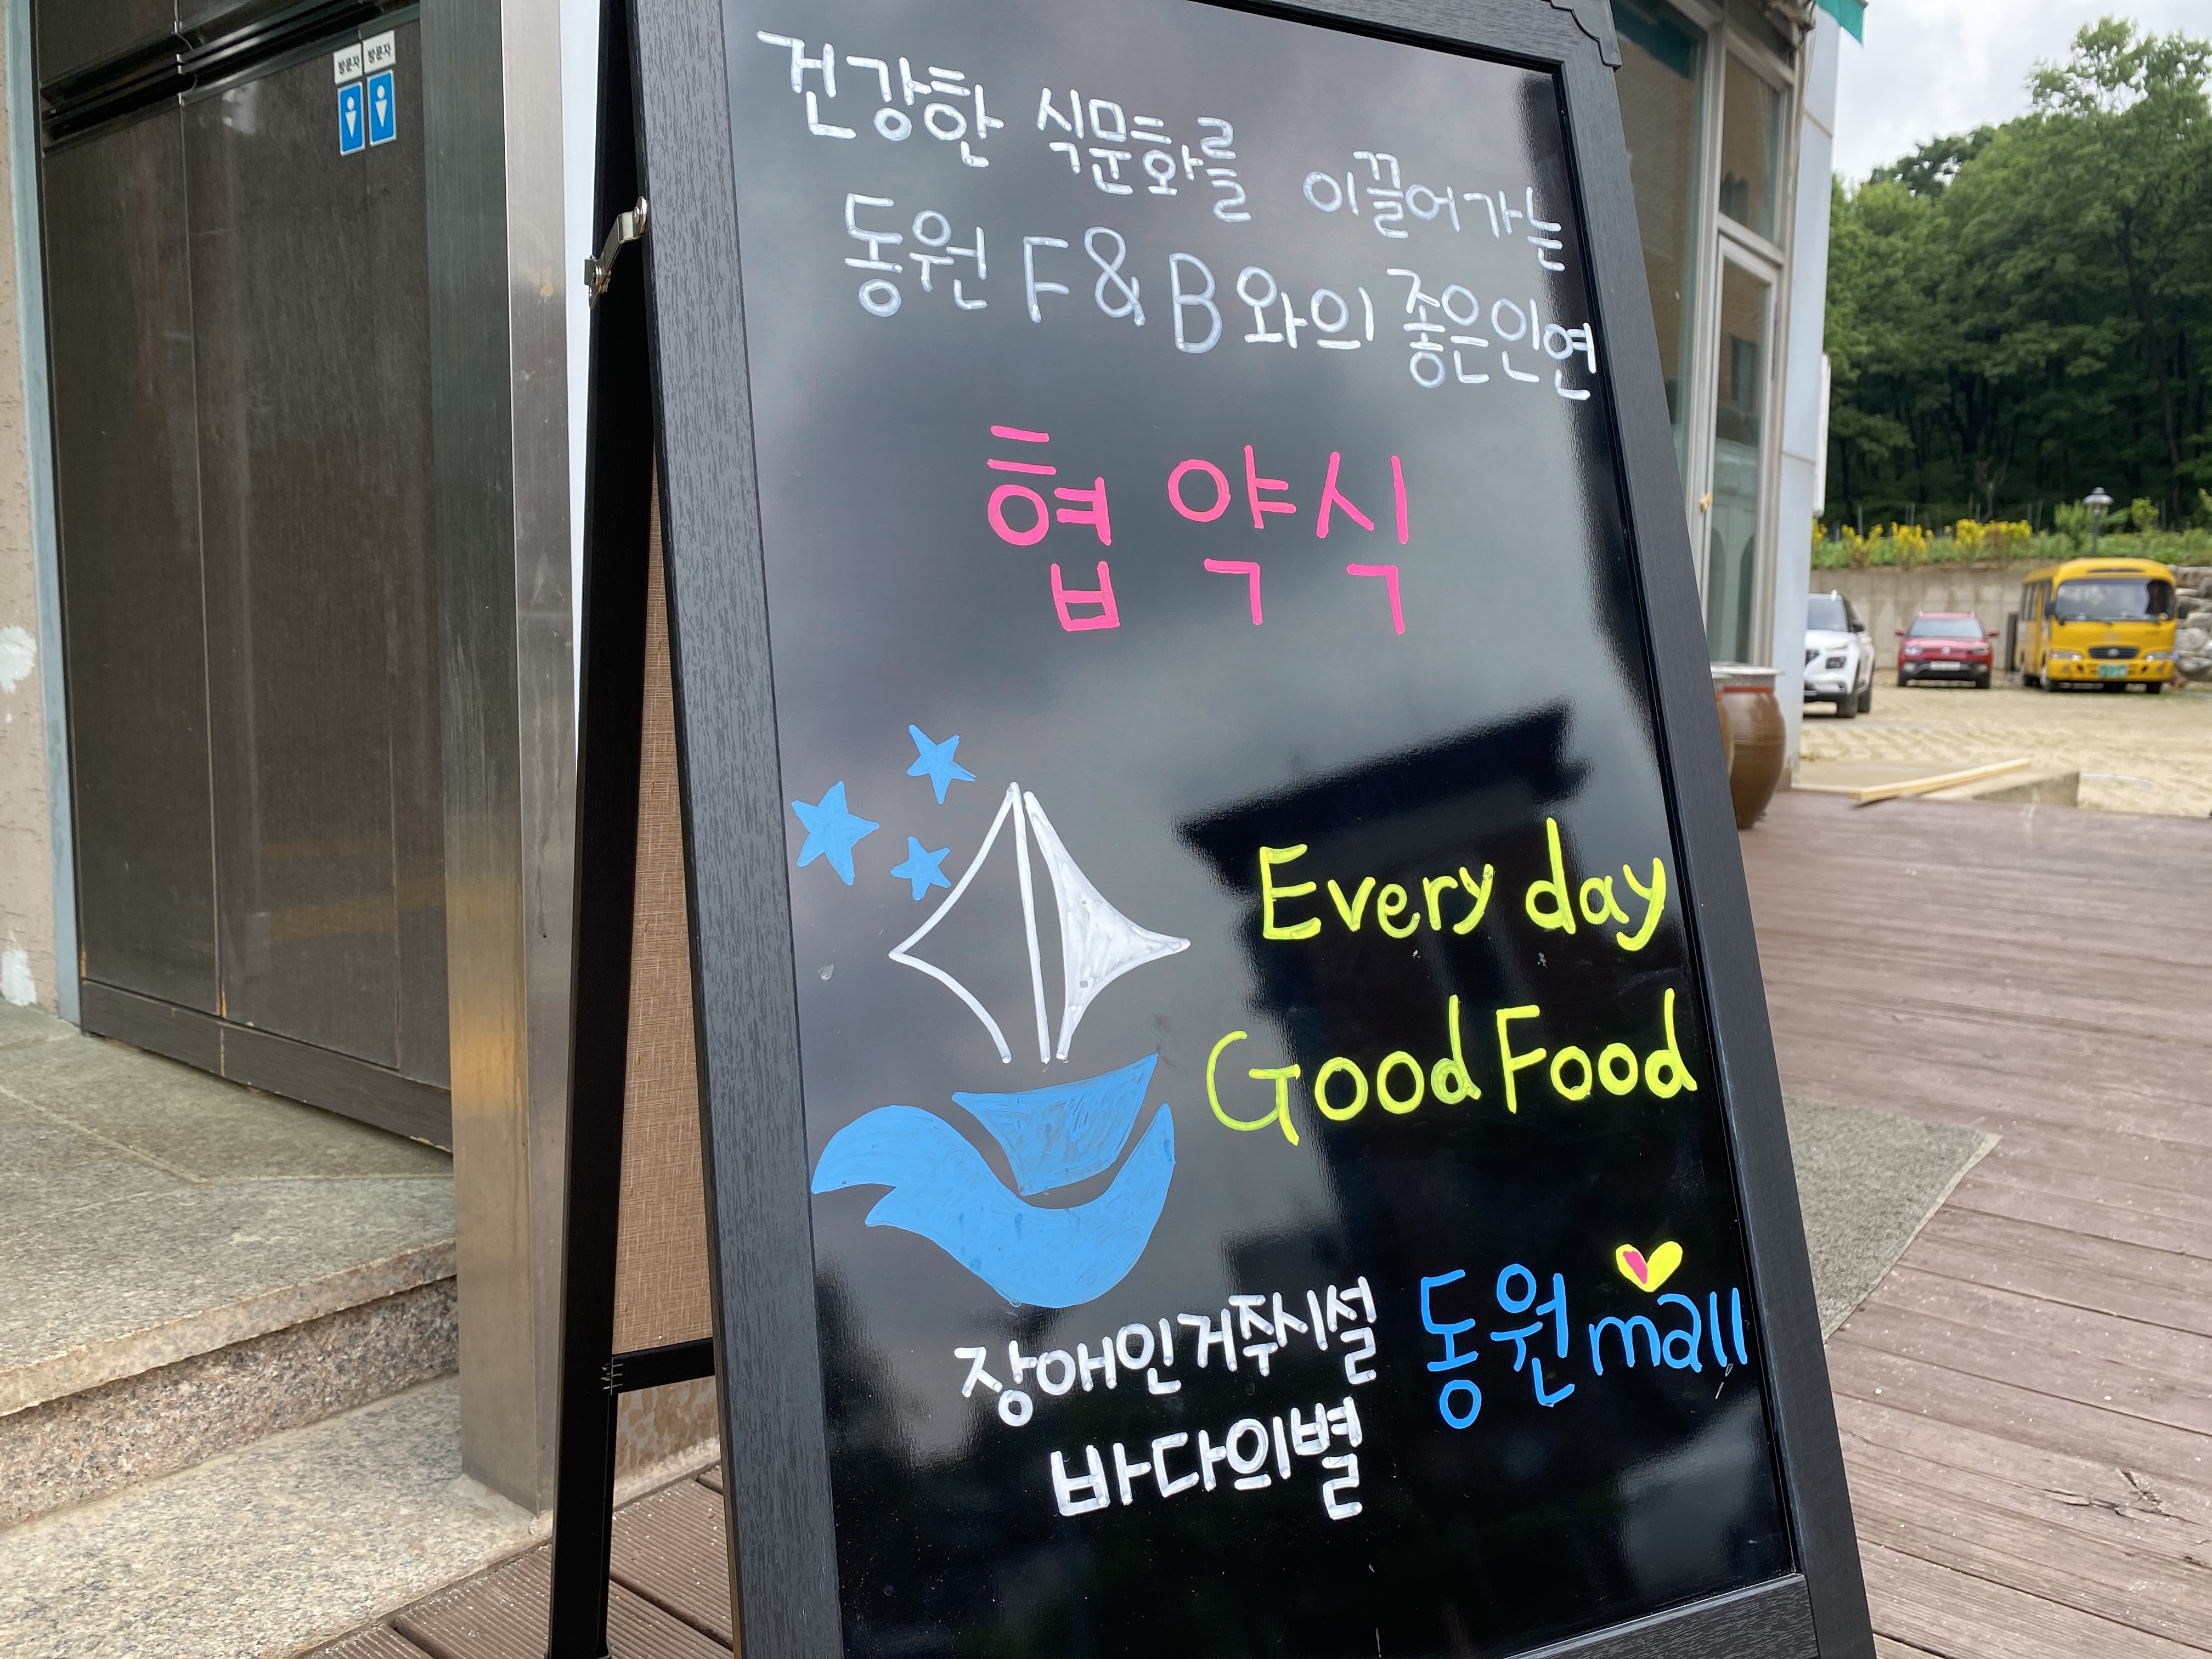 방문자 방문자
건강한 식문화를 이끌어가는
동원 F&B와의 좋은인연
협약식
Every day
Good Food
장애인거주시설 동원mall
바다의별